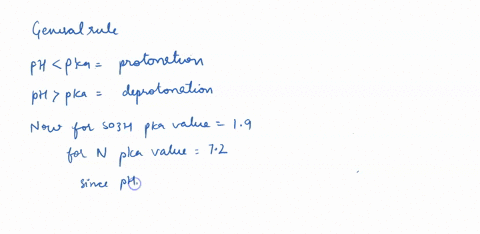 General rule
pH < pka = protonetion
pH > pka = deprotonation
Now for SO3H pka value = 1.9
for N pka value = 7.2
since pH